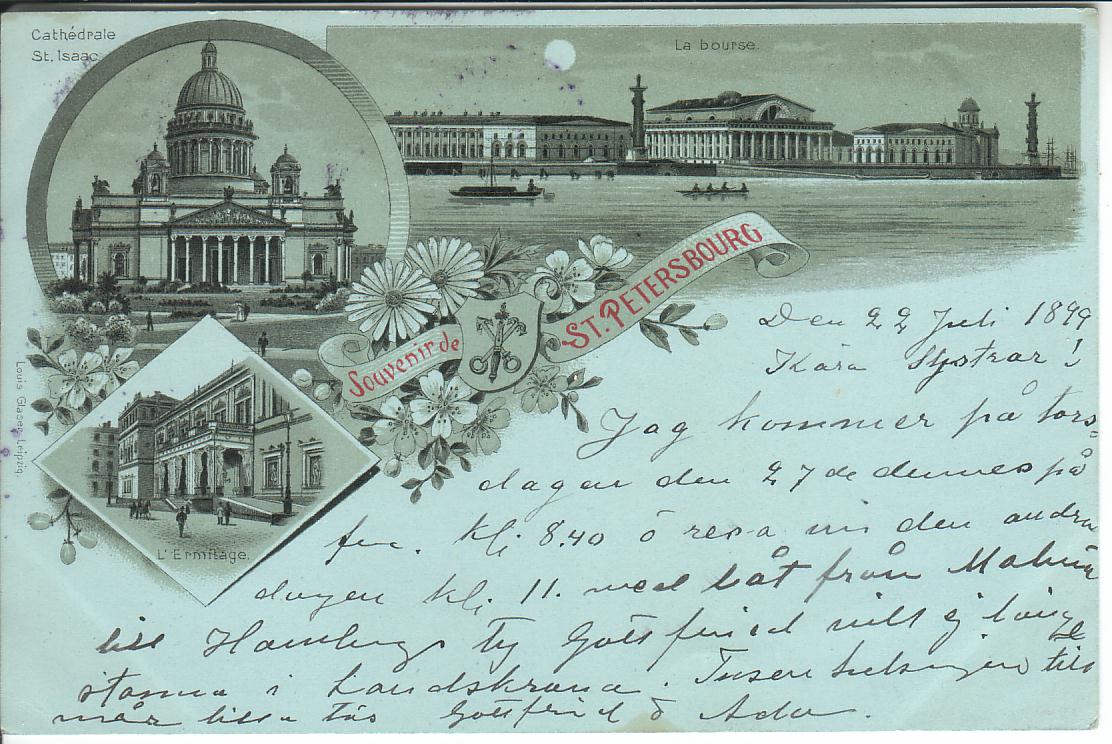 Cathédrale
St. Isaac
La bourse.
Souvenir de
ST. PETERSBOURG
L'Ermitage.
Louis Glaser, Leipzig.
Den 22 Juli 1899
Kära Systrar!
Jag kommer på tors=
dagen den 27 de dennes på
fm. kl; 8.40 ō resa vi den andra
dagen kl; 11. med båt från Malmö
till Hamburg Ty Gottfried vill ej läng
stanna i Landskrona. Tusen helsningar till
mår lilla Gottfrid & Ada.